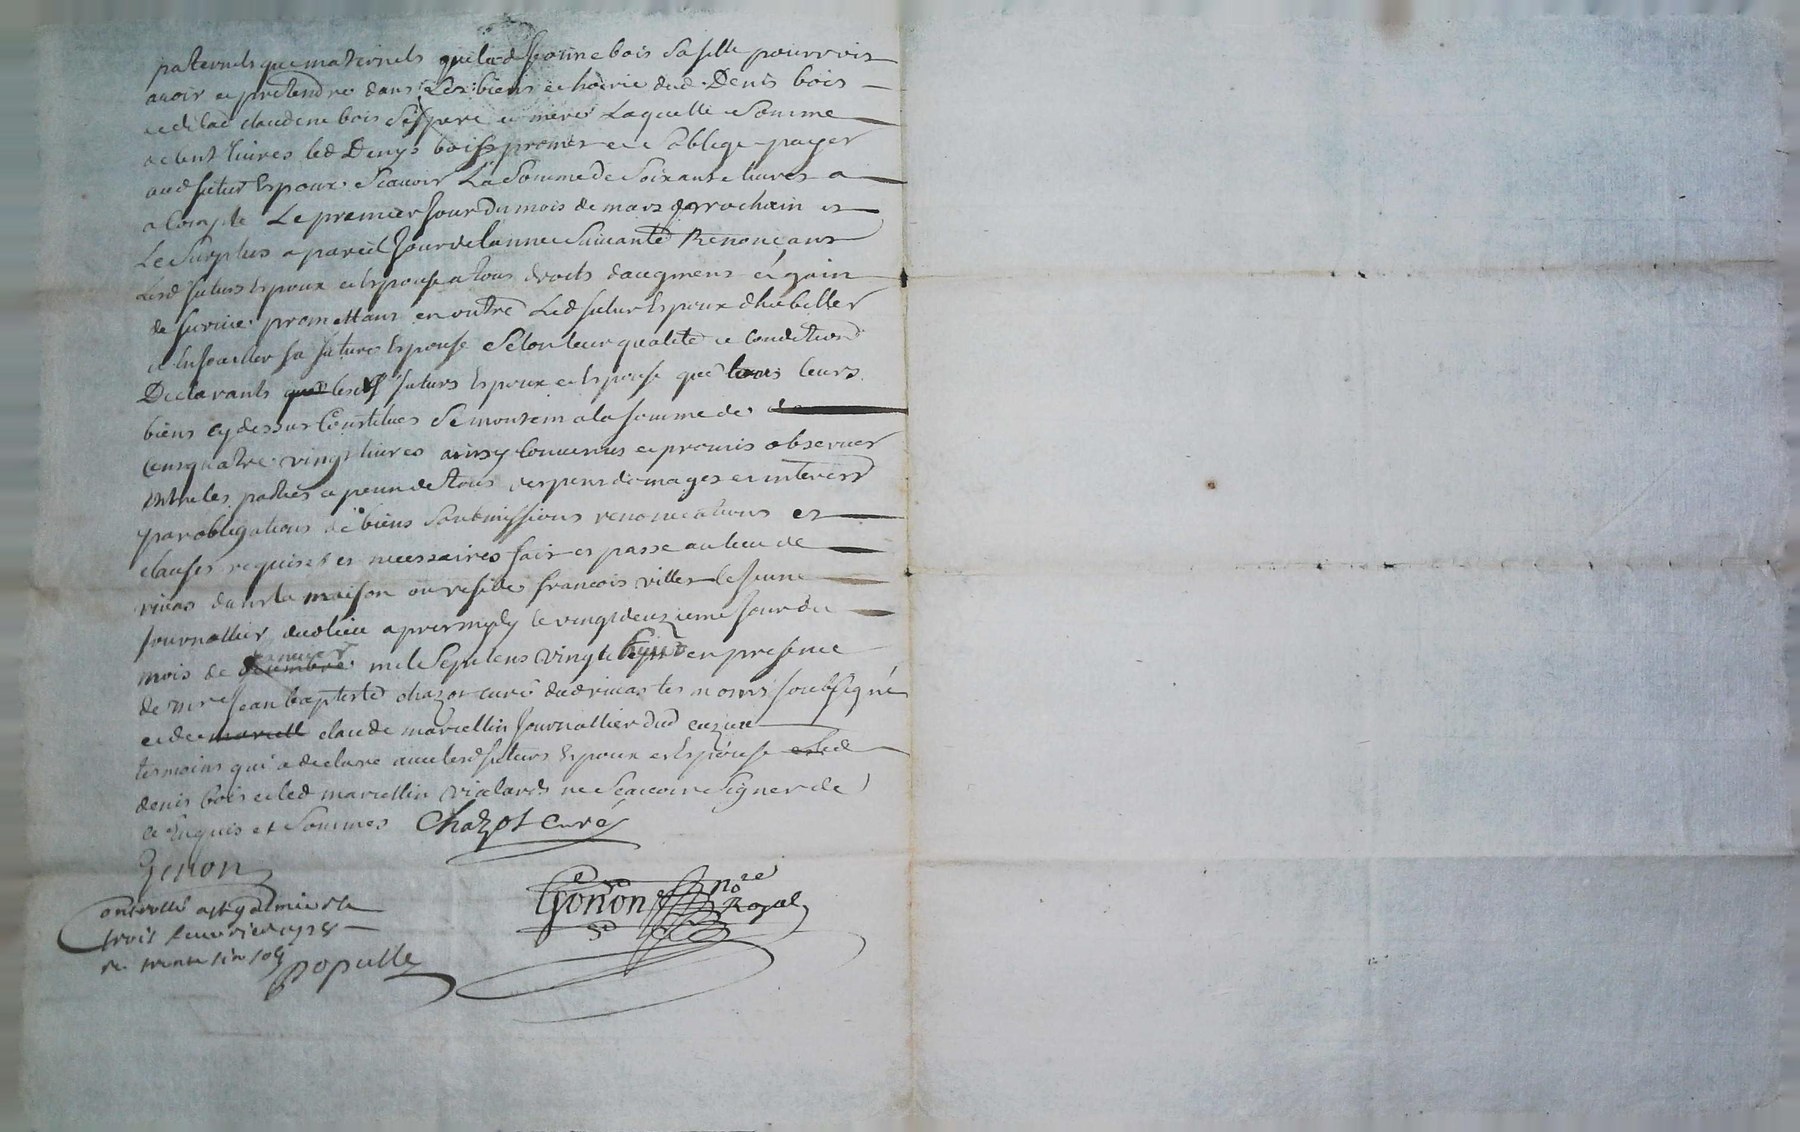 paternels que maternels que lad Jeanne bois sa fille pourroit
avoir et pretendre dans Les biens et hoirie dud Denis bois
et de lad claudine bois Ses pere et mere Laquelle Somme
de Cent livres led Denys bois promet et Soblige payer
aud futur Espoux Scavoir La Somme de Soixante livres a
a Compte Le premier Jour du mois de mars prochain et
Le Surplus a pareil Jour de lannee Suivante Renoncant
Lesd futurs Espoux et Espouse a tous droits daugment et gain
de Survie promettant en outre Led futur Espoux dhabiller
et Enjoailler sa future Espouse Selon leur qualité et Condition
Declarants lesd futurs Espoux et Espouse que tous leurs
biens cy dessus Constitues Se montent a la Somme de
Cent quatre vingt livres ainsy Convenus et promis observer
Entre les parties a peine de tous despens domages et interest
par obligations de biens Soubmissions renonciations et
clauses requises et necessaires fait et passe au lieu de
rivas dans la maison ou reside francois viller le Jeune
Journallier dud lieu apres midy le vingt deuzieme Jour du
mois de janvier mil Sept Cens Vingt huit en presence
de mre Jean baptiste chazot curé dud rivas tesmoins soubsigné
et de claude marcellin Journallier dud cuzieu
tesmoins qui a declaré avec lesd futurs Espoux et Espouse
denis bois et led marcellin vialard ne Scavoir Signer de
Ce Enquis et Sommes Chazot Curé
Genon
Gonon nore Royal
Controllé a St galmier le
trois fevvrier 1728
Re trente six sols
Populle